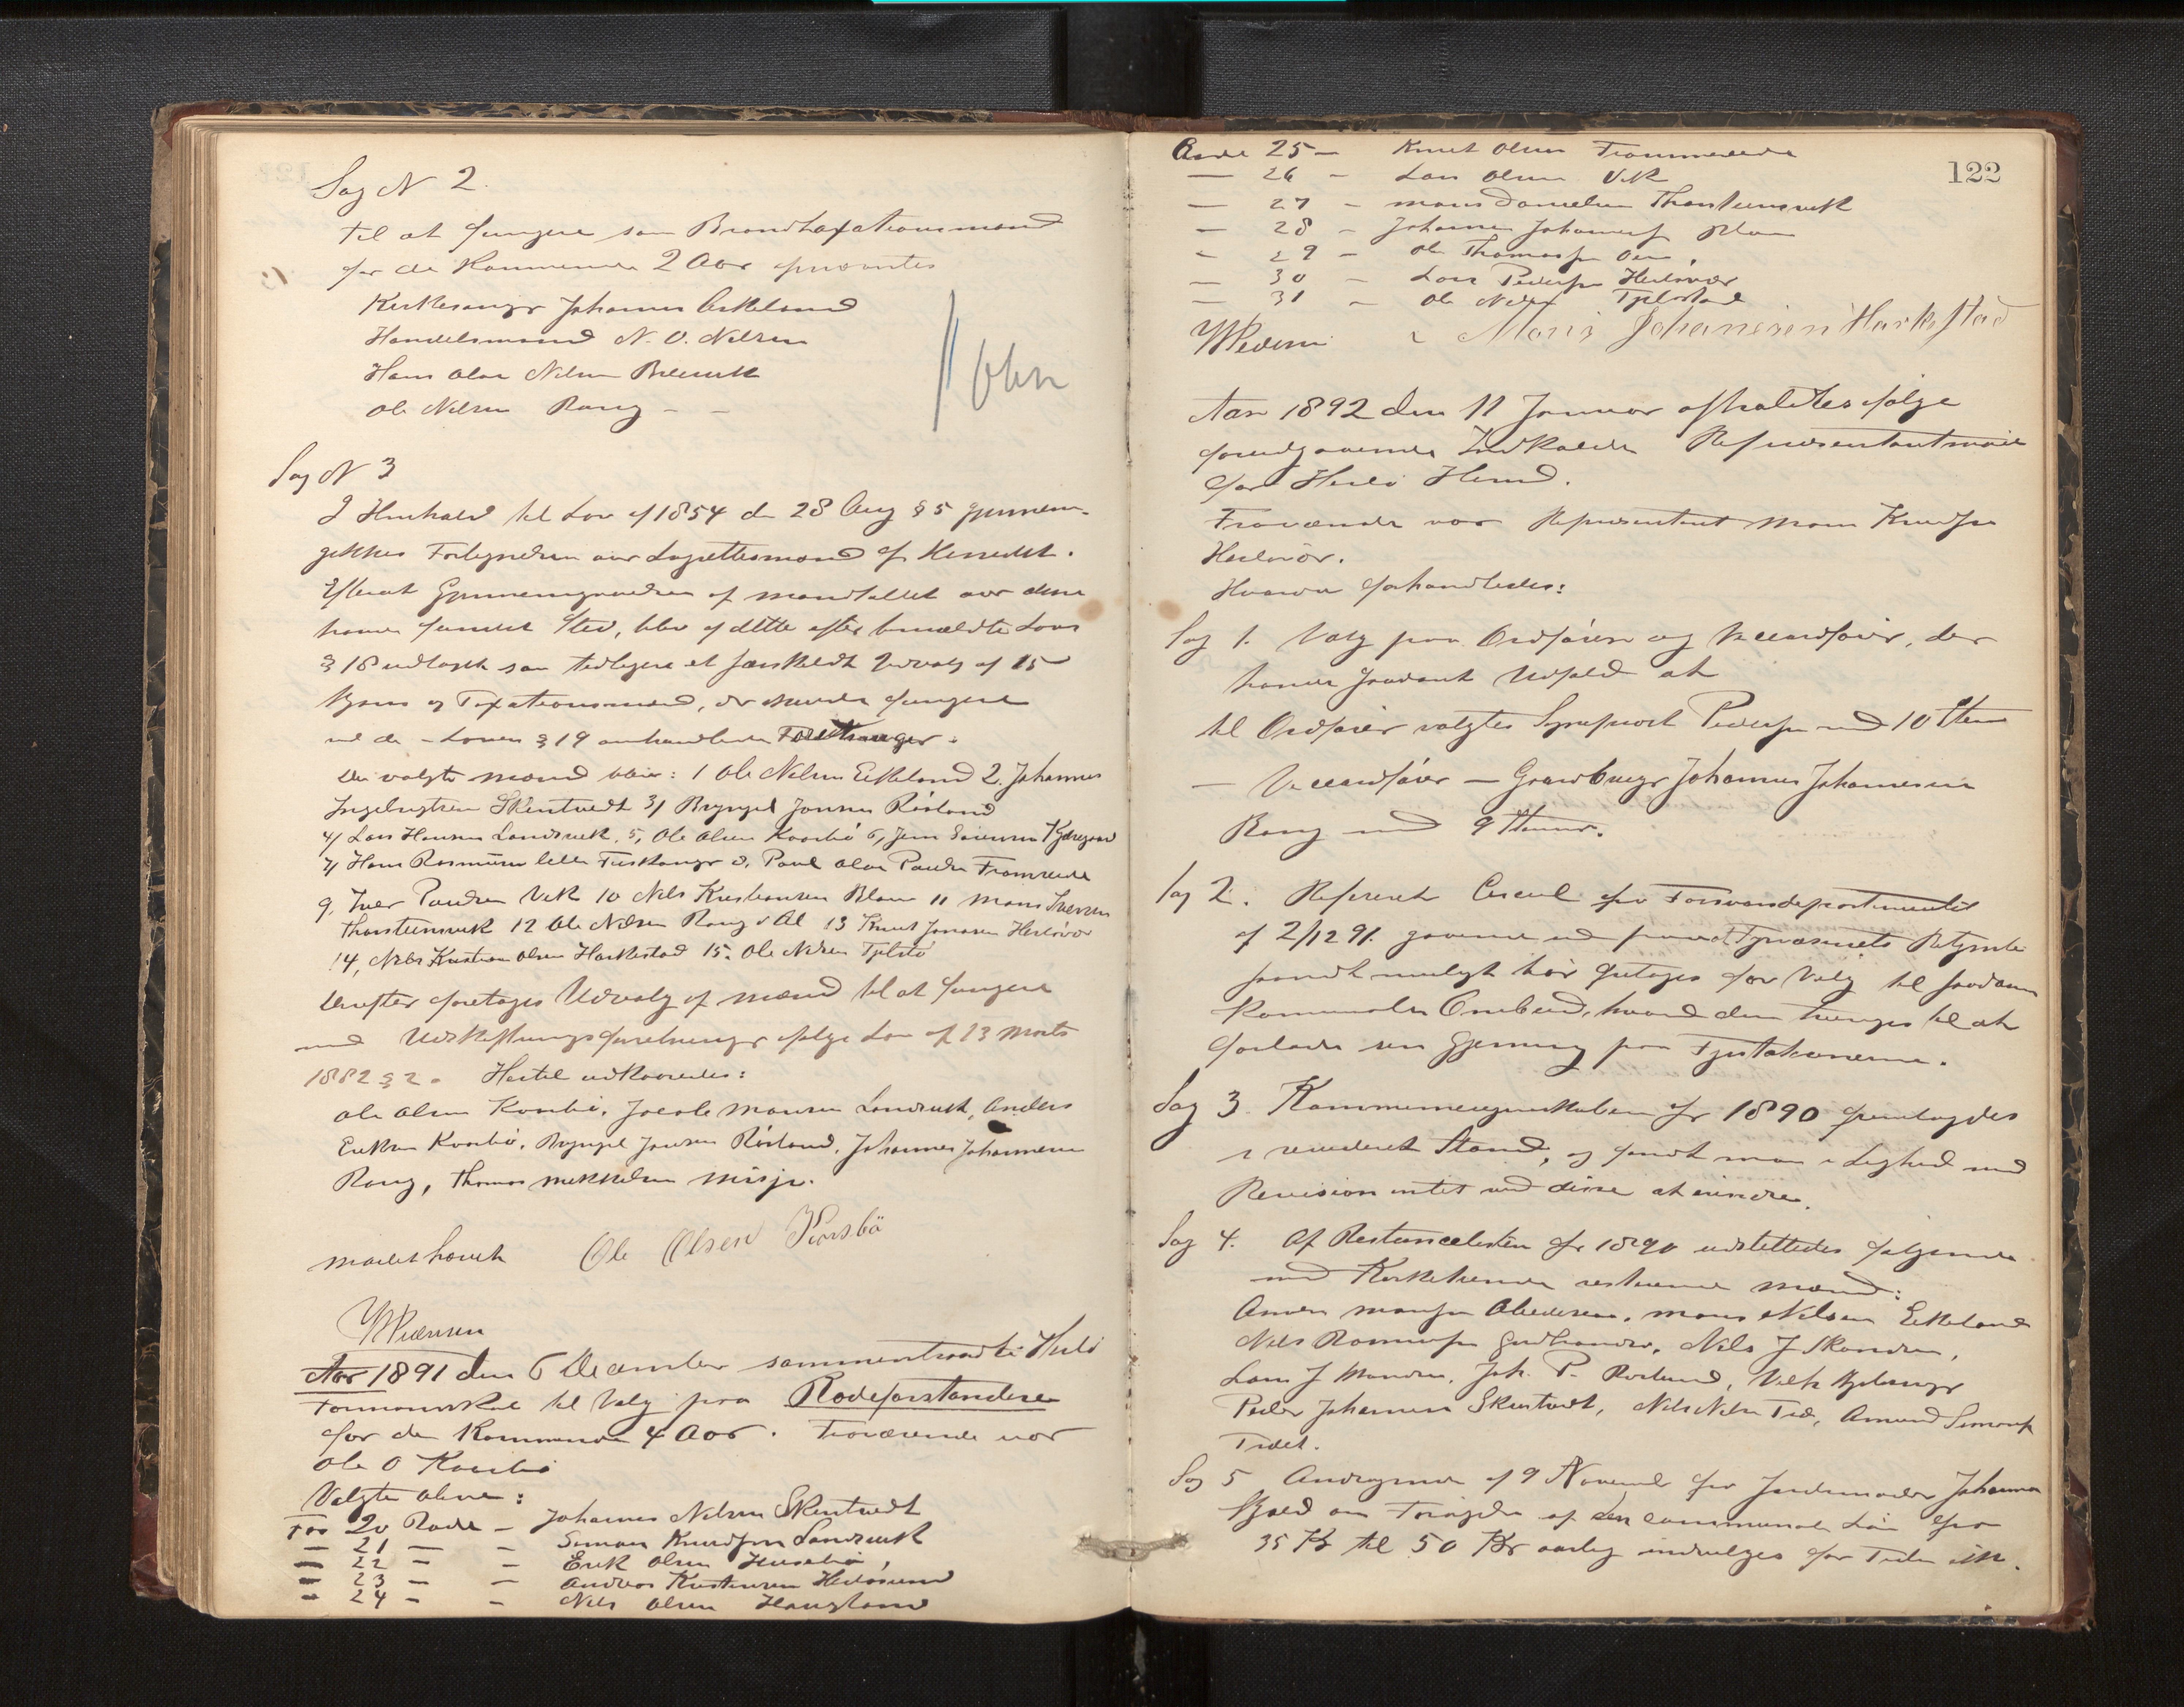 Sag N 2.
til at fungere som Brandtaxationsmænd
for de Kommende 2 Aar opnævntes
Kirkesanger Johannes Eikeland
Handelsmand N. O. Nilsen
Hans Olai Nilsen
Ole Nilsen Rong
Sag N 3
I Henhold til Lov af 1854 d. 28 Aug § 5 gjennem-
gikkes Fortegnelsen over Lagrettesmænd af Herredet.
Efterat Gjennemgaaelsen af mandtallet over disse
havde fundet Sted, blev af dette efter bemeldte Lovs
§ 18 udtaget som tidligere et særskildt Udvalg af 15
Skjøns og Taxationsmænd, der skulde fungere
ved de i Loven § 19 omhandlede Forretninger.
De valgte mænd blev: 1 Ole Nilsen Eikeland 2. Johannes
Ingebrigtsen Skjentvedt 3/ Brynjel Jonsen Rösland
4/ Lars Hansen Landsvik 5, Ole Olsen Kvorbö 6, Jens
7/ Hans Rasmusen lille Fuskanger 8, Paul Olai Paulsen Fromreide
9, Iver Paulsen Vik 10 Nils Kristiansen Blom 11 Mons Iversen
Thorsteinsvik 12 Ole Nilsen Rong 13 Knut Jonasen Herlövær
14, Nils Kristian Olsen Harkestad 15. Ole Nilsen
Derefter foretages Udvalg af mænd til at fungere
ved Udskiftningsforretninger ifølge Lov af 13 Marts
1882 § 2. Hertil udkaaredes:
Ole Olsen Kvorbö, Jacob Monsen Landsvik, Anders
Eriksen Kvorbö, Brynjel Jonsen Rösland, Johannes Johannesen
Rong, Thomas Mikkelsen Misje.
mødet hævet Ole Olsen Kvorsbö
Olsen
Pedersen
Aar 1891 den 6 December sammentraadte Herlö
Formandskab til Valg paa Rodeforstandere
for de Kommende 4 Aar. Fraværende var
Ole O Kvorbö
Valgte bleve:
For 20 Rode – Johannes Nilsen Skjentvedt
– 21 – – Simon Knudsen Landsvik
– 22 – – Erik Olsen Husebö,
– 23 – – Andreas Kristensen Herlösund
– 24 – – Nils Olsen Haugland
122
Rode 25 – Knut Olsen Fromreide
– 26 – Lars Olsen Vik
– 27 – Mons Danielsen Thorsteinsvik
– 28 – Johannes Johannesen Blom
– 29 – Ole Thomassen Oen,
– 30 – Lars Pedersen Herlövær
– 31 – Ole Nilsen
Pedersen Mons Johannesen Harkestad
Aar 1892 den 11 Januar afholdtes ifølge
foregaaende Indkaldelse Repræsentantmøde
for Herlö Herred.
Fraværende var Repræsentant Mons Knudsen
Herlövær.
Hvorda forhandledes:
Sag 1. Valg paa Ordfører og Viceordfører, der
havde saadant Udfald at
til Ordfører valgtes Sogneprest Pedersen med 10 Stem
– Viceordfører – Gaardbruger Johannes Johannesen
Rong med 9 Stemmer.
Sag 2. Refereret Circul fra Forsvarsdepartementet
af 2/12 91. gaaende ud paa at Fyrvæsenets Betjente
saavidt muligt bør fritages for Valg til saadanne
Kommunale Ombud, hvorved de tvinges til at
forlade sin Gjerning paa Fyrstationerne.
Sag 3. Kommuneregnskaben for 1890 fremlagdes
i revideret Stand, og fandt man i Lighed med
Revision intet ved disse at erindre.
Sag 4. Af Restancelisten for 1890 udslettedes følgende
med resterende mænd:
Anders Monsen Mons Nilsen Eikeland
Nils Rasmusen Nils J Skonden,
Lars J Joh. P. Rösland,
Peder Johannesen Skjentvedt, Nils Nilsen Tved, Amund Simonsen
Sag 5 Andragende af 9 November fra Jordemoder Johanna
Skjold om Forøgelse af den communale Løn fra
35 Kr til 50 Kr aarlig indvilges for Tiden ikke.